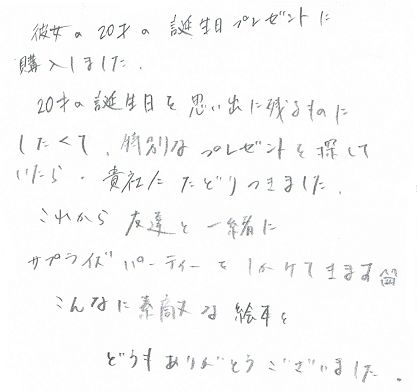 彼女の20才の誕生日プレゼントに
購入しました.
20才の誕生日を思い出に残るものに
したくて、特別なプレゼントを探して
いたら、貴社にたどりつきました.
これから友達と一緒に
サプライズパーティーをしかけてきます
こんなに素敵な絵本を
どうもありがとうございました.